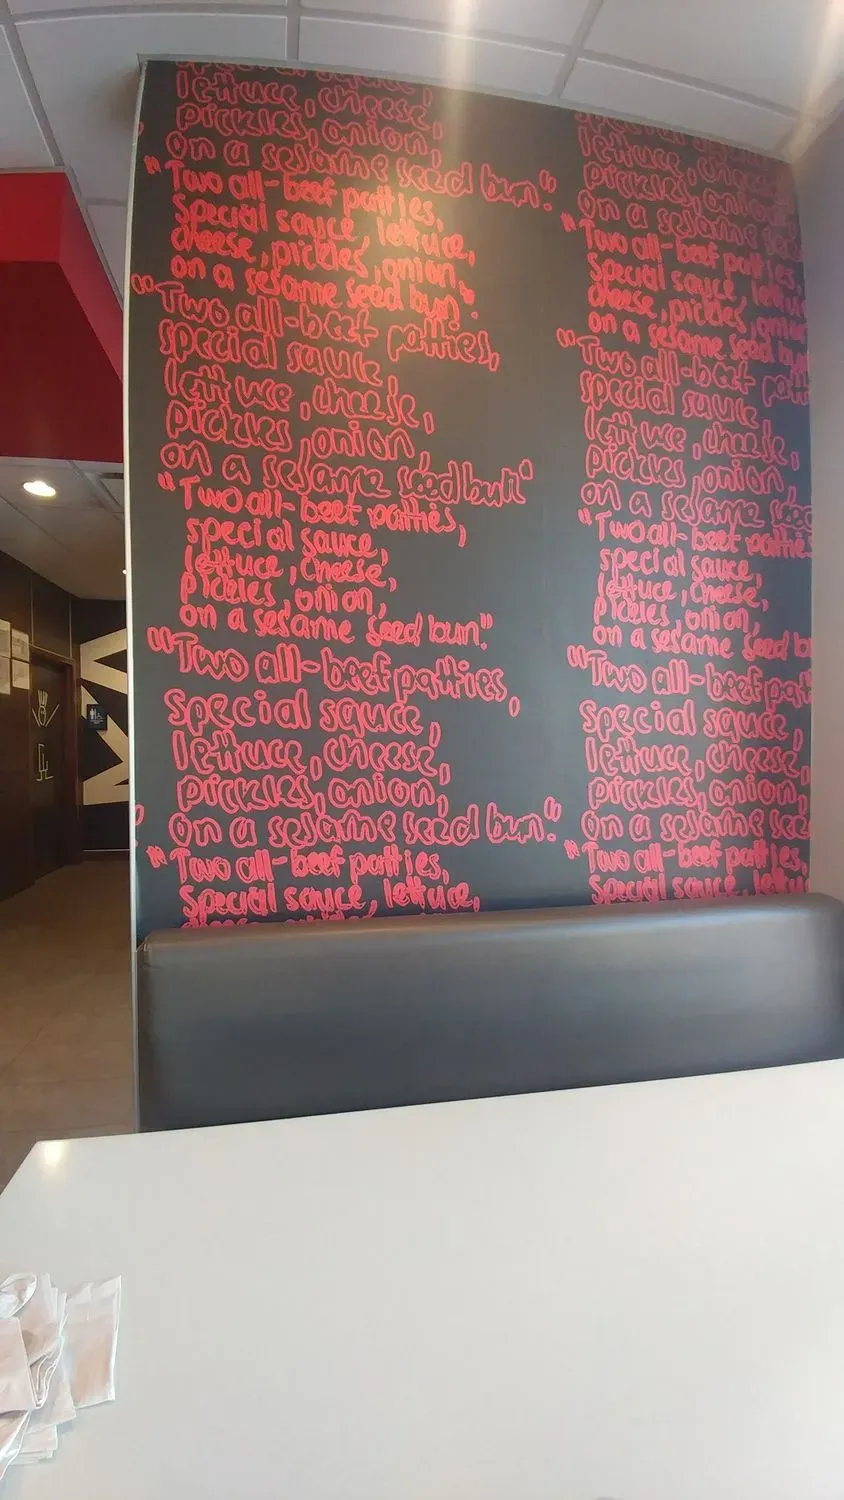 special sauce,
lettuce, cheese,
pickles, onion,
on a sesame seed bun."
"Two all-beef patties,
special sauce, lettuce,
cheese, pickles, onion,
on a sesame seed bun".
"Two all-beef patties,
special sauce
lettuce, cheese,
pickles, onion,
on a sesame seed bun"
"Two all-beef patties,
special sauce,
lettuce, cheese,
pickles, onion,
on a sesame seed bun."
"Two all-beef patties,
special sauce,
lettuce, cheese,
pickles, onion,
on a sesame seed bun."
"Two all-beef patties,
special sauce, lettuce,
special
lettuce, cheese
pickles, onion
on a sesame see
"Two all-beef patties,
special sauce, lettu
cheese, pickles, onion
on a sesame seed bun
"Two all-beef patt
special sauce
lettuce, cheese,
pickles, onion
on a sesame seed
"Two all-beef patties
special sauce,
lettuce, cheese,
pickles, onion,
on a sesame seed b
"Two all-beef pat
special sauce,
lettuce, cheese,
pickles, onion,
on a sesame see
"Two all-beef patties,
special sauce, lettu